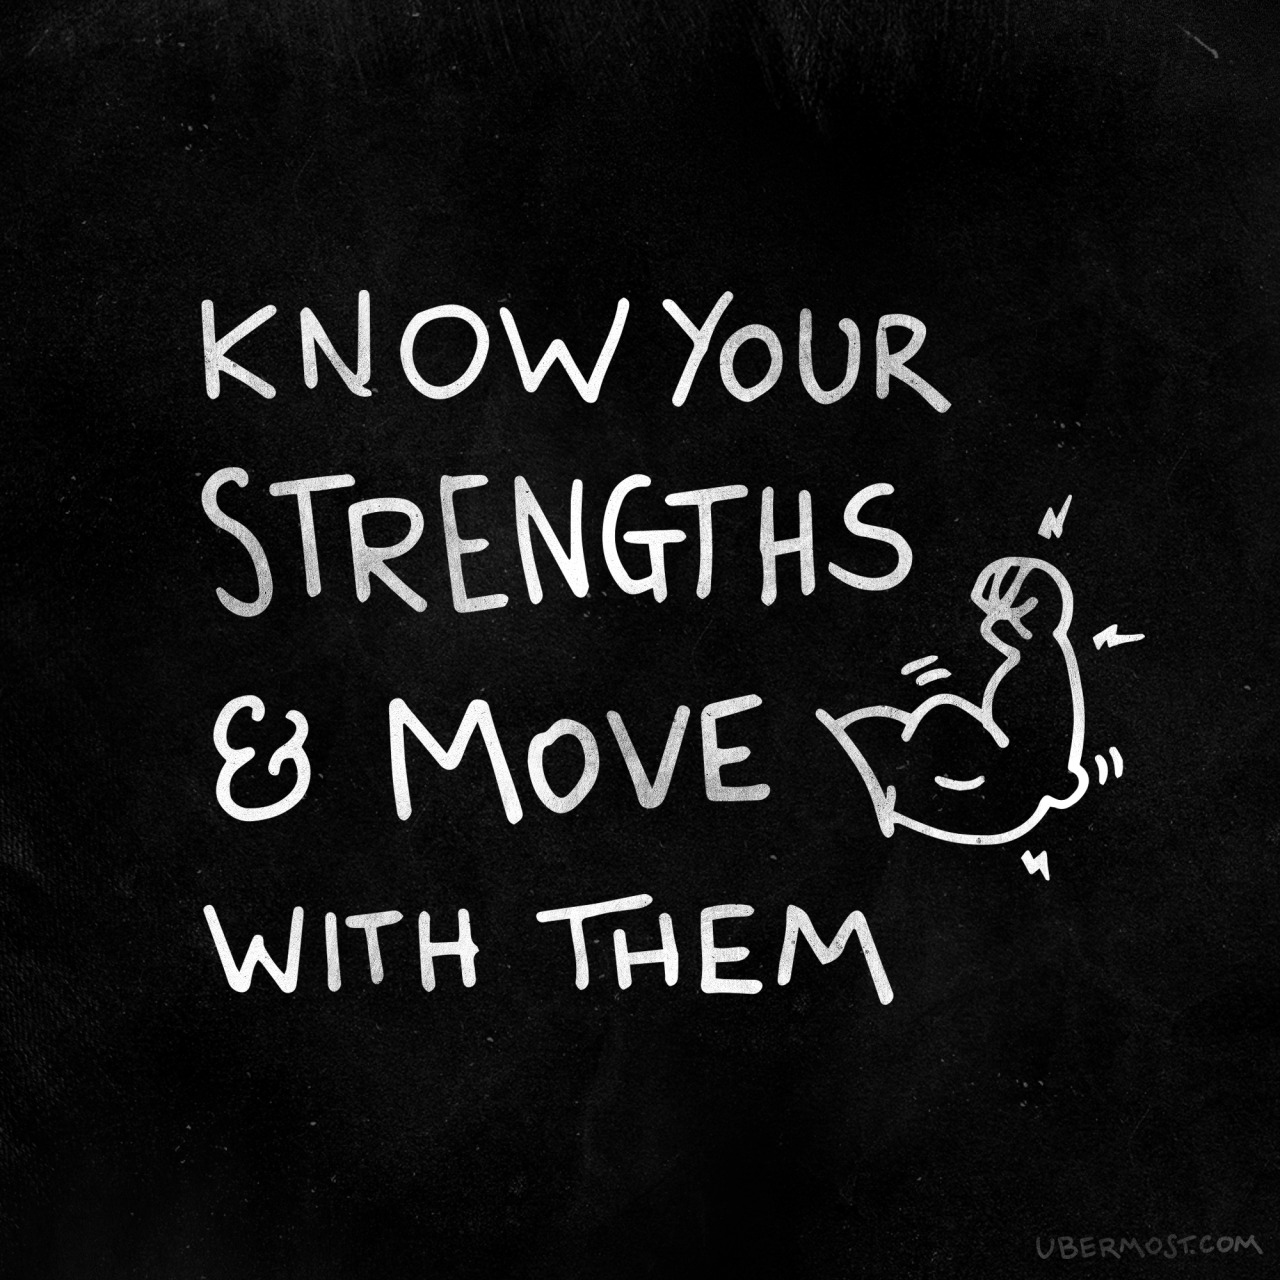 KNOW YOUR
STRENGTHS
& MOVE
WITH THEM
UBERMOST.COM